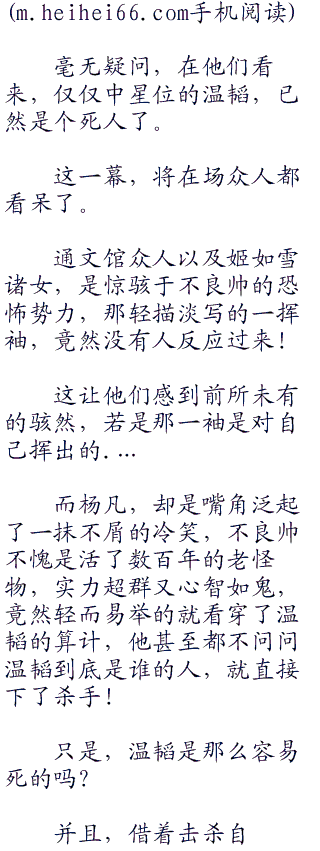 (m.heihei66.com手机阅读)
毫无疑问，在他们看
来，仅仅中星位的温韬，已
然是个死人了。
这一幕，将在场众人都
看呆了。
通文馆众人以及姬如雪
诸女，是惊骇于不良帅的恐
怖势力，那轻描淡写的一挥
袖，竟然没有人反应过来！
这让他们感到前所未有
的骇然，若是那一袖是对自
己挥出的....
而杨凡，却是嘴角泛起
了一抹不屑的冷笑，不良帅
不愧是活了数百年的老怪
物，实力超群又心智如鬼，
竟然轻而易举的就看穿了温
韬的算计，他甚至都不问问
温韬到底是谁的人，就直接
下了杀手！
只是，温韬是那么容易
死的吗？
并且，借着击杀自